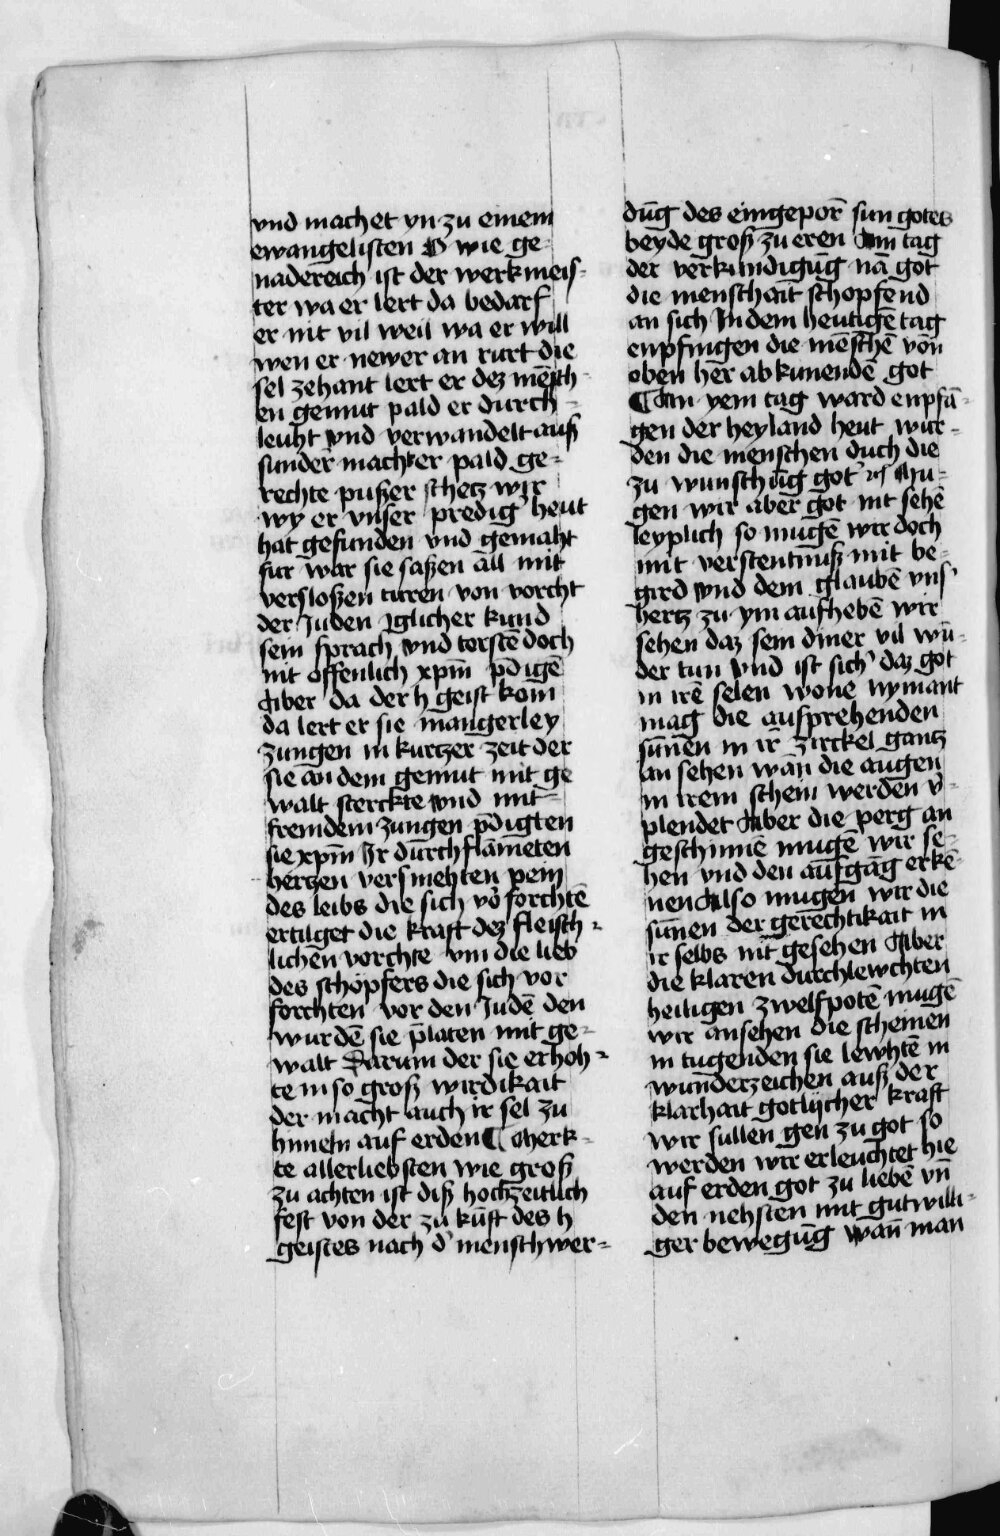 vnd machet yn zu einem
ewangelisten O wie ge-
nadereich ist der werkmeis-
ter wa er lert da bedarf
er nit vil weil wa er will
wen er newer an rurt die
sel zehant lert er dez mēsch
en gemut pald er durch-
leuht vnd verwandelt auß
sunder macht er pald ge-
rechte pußer schetz wir
wy er vnser predig heut
hat gefunden vnd gemaht
fur war sie saßen all mit
versloßen turen von vorcht
der Juden iglicher kund
sein sprach vnd torstē doch
nit offenlich xpm̄ p̄digē
Aber da der h geist kom
da lert er sie mangerley
zungen in kurtzer zeit der
sie an dem gemut mit ge
walt sterckte vnd mit
fremden zungen p̄digten
sie xpm̄ Jr durchflāmeten
hertzen versmehten pein
des leibs die sich vō forchtē
ertilget die kraft dez fleisch-
lichen vorchte vm die lieb
des schöpfers die sich vor
forchten vor den Judē den
wurdē sie p̄laten mit ge-
walt Darum der sie erhoh-
te in so groß wirdikait
der macht auch ir sel zu
himeln auf erden ¶ Merk-
te allerliebsten wie groß
zu achten ist diß hochzeitlich
fest von der zu kūft des h
geistes nach d' menschwer-
dūg des eingeporn̄ sun gotes
beyde groß zu eren Am tag
der verkundigūg nā got
die menschait schopfend
an sich In dem heutigē tag
enpfingen die mēschē von
oben her ab kumendē got
¶ An yem tag ward enpfā-
gen der heyland heut wur-
den die menschen duch die
zu wunschūg got' Mu-
gen wir aber got nit sehē
leyplich so mugē wir doch
mit verstentnuß mit be-
gird vnd dem glaubē vns'
hertz zu ym aufhebē wir
sehen daz sein diner vil wū-
der tun vnd ist sich' daz got
in irē selen wone nymant
mag die aufprehenden
sunnen in ir zirckel gantz
an sehen wān die augen
in irem schein werden v'-
plendet Aber die perg an
geschinnē mugē wir se-
hen vnd den aufgāg erkē-
nen Also mugen wir die
sunnen der gerechtikait in
ir selbs nit gesehen Aber
die klaren durchlewchten
heiligen zwelfpotē mugē
wir ansehen die scheinen
in tugenden sie lewhtē in
wunderzeichen auß der
klarhait gotlicher kraft
wir sullen gen zu got so
werden wir erleuchtet hie
auf erden got zu liebē vn̄
den nehsten mit gutwilli-
ger bewegūg wān man